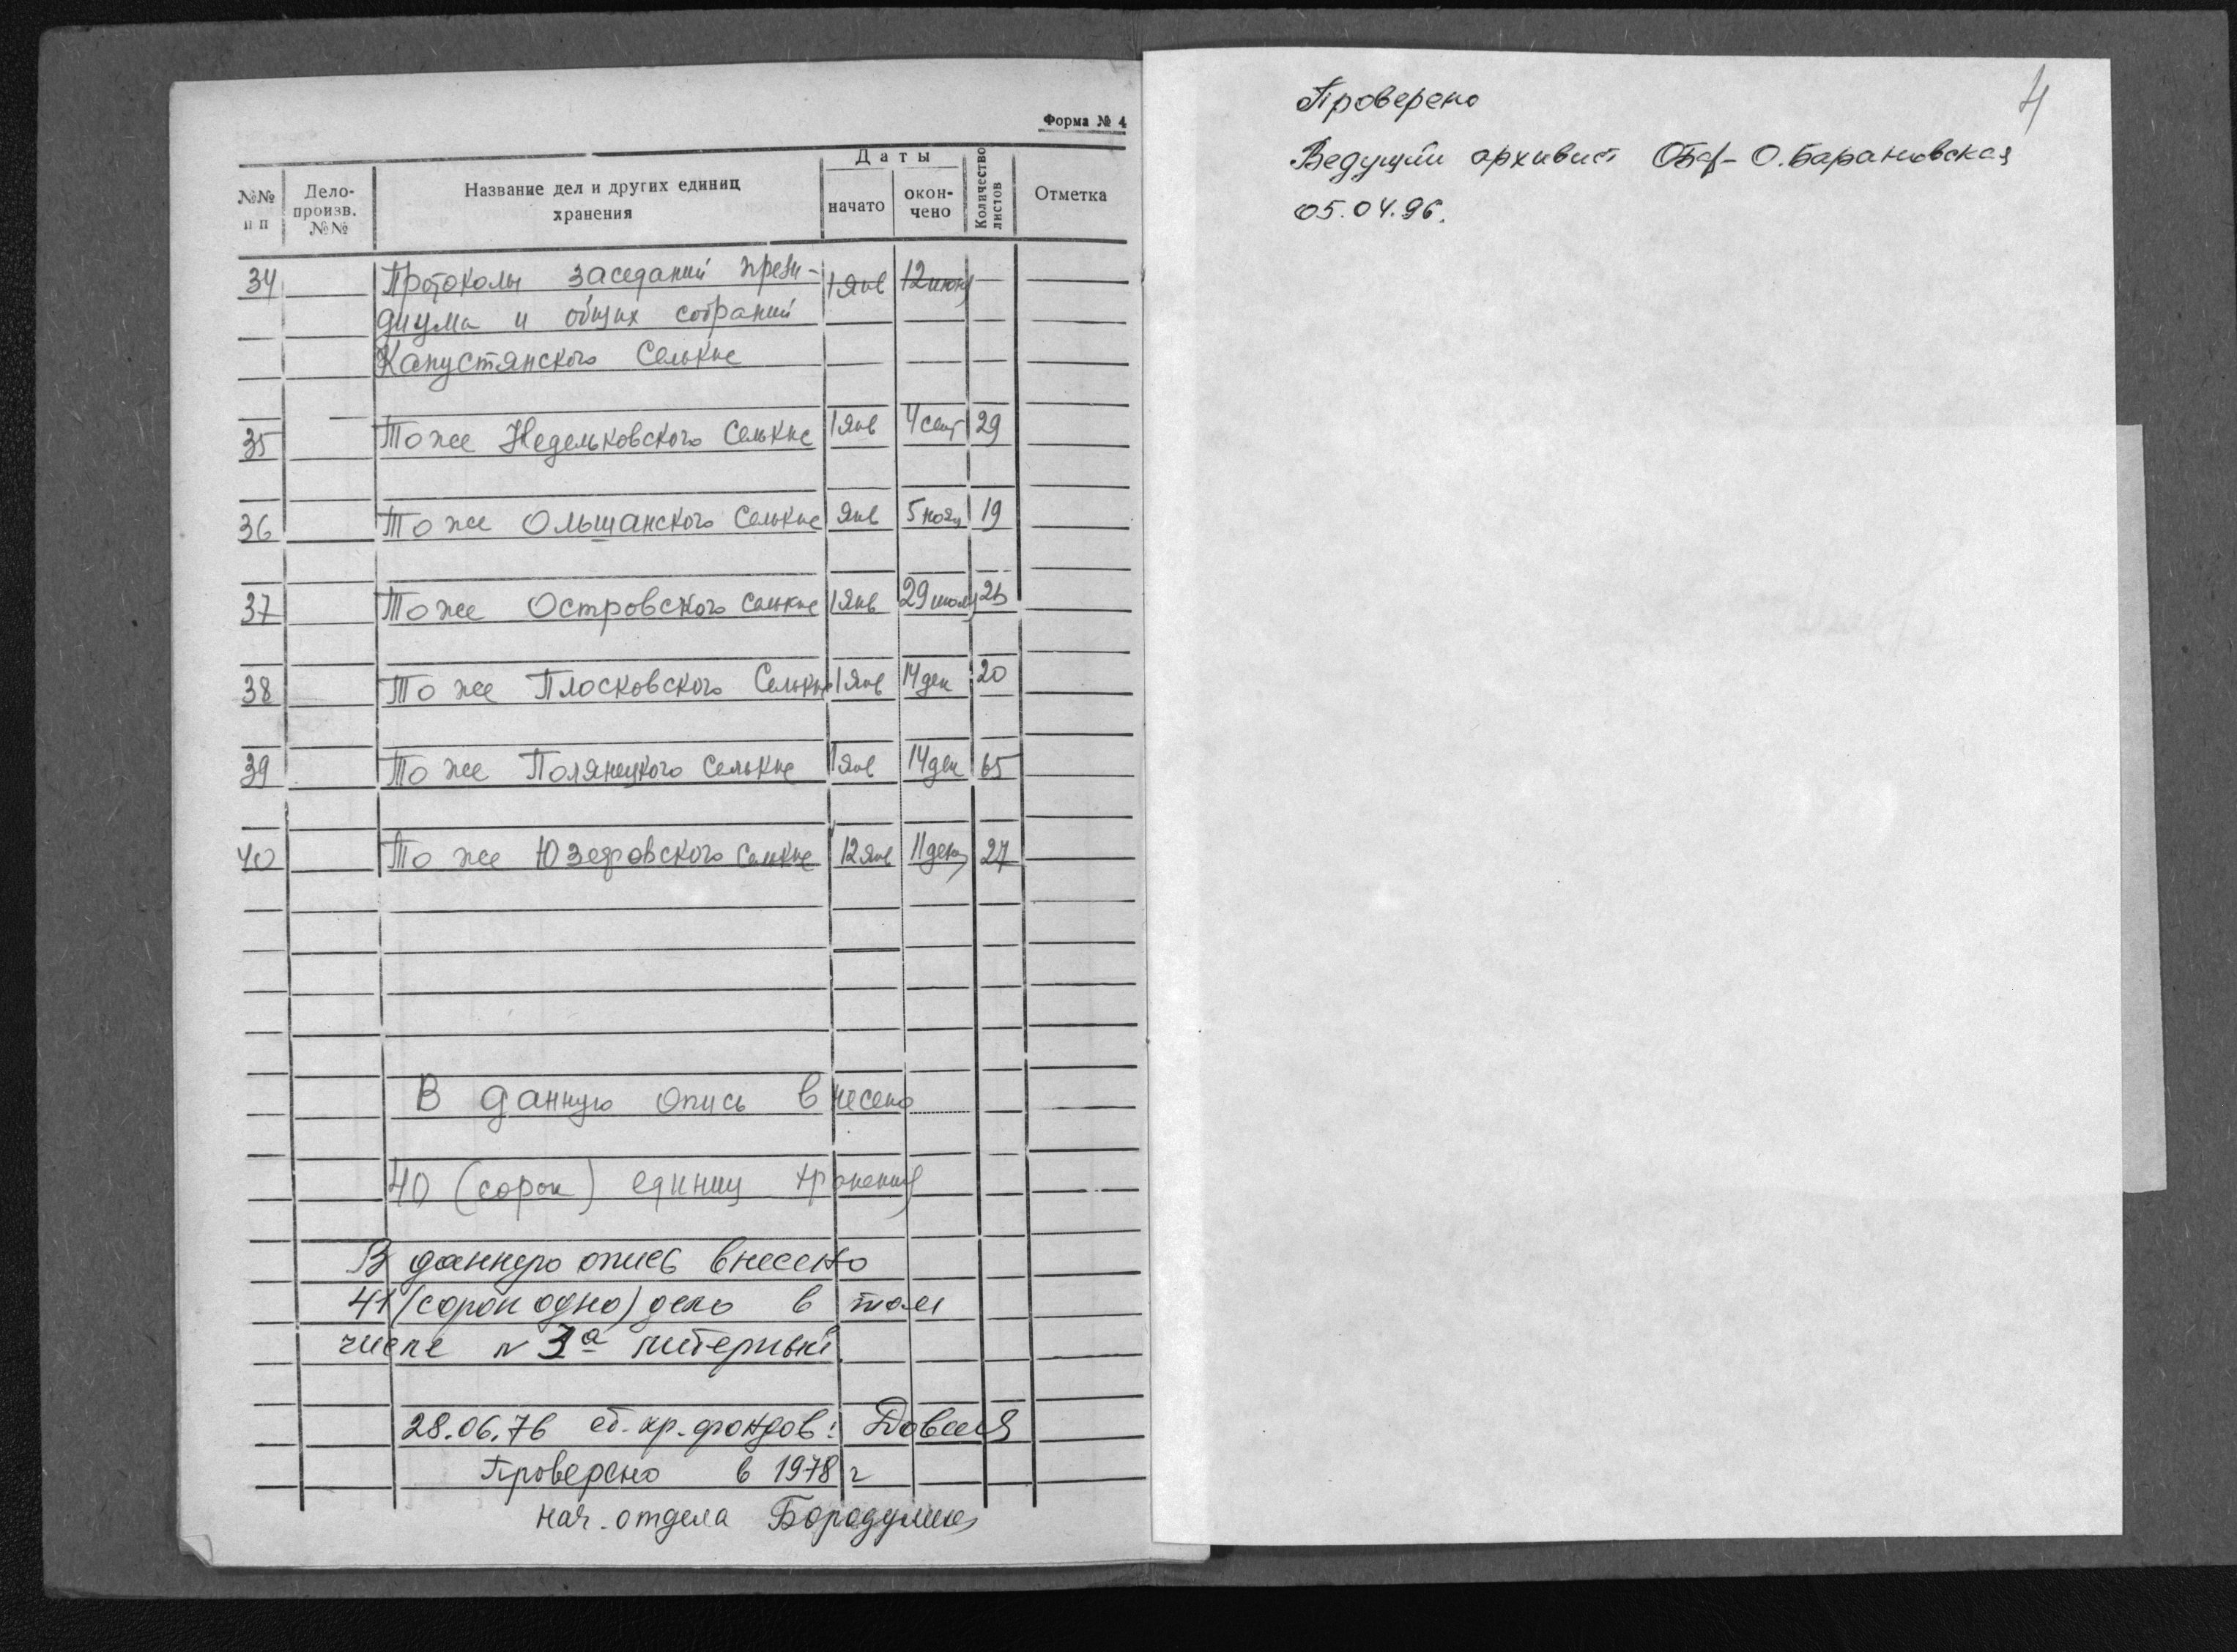 Форма № 4
№№ п п | Дело-произв. №№ | Название дел и других единиц хранения | Даты | начато | окон-чено | Количество листов | Отметка
34 Протоколы заседаний прези- 1 янв 12 июня
диума и общих собраний
Капустянского Селькие
35 То же Недельковского Селькие 1 янв 4 сент 29
36 То же Ольшанского Селькие янв 5 нояб 19
37 То же Островского Селькие 1 янв 29
38 То же Плосковского Селькие 1 янв 14 дек 20
39 То же Полянецкого Селькие 1 янв 14 дек 65
40 То же Юзефовского Селькие 12 янв 11 дек 27
В данную опись внесено
40 (сорок) единиц хранения
В данную опись внесено
41 (сорок одно) дело в том
числе № 3а литерный
28.06.76 ст. хр. фондов:
Проверено в 1978 г
нач. отдела
4
Проверено
Ведущий архивист О. Барановская
05.04.96.